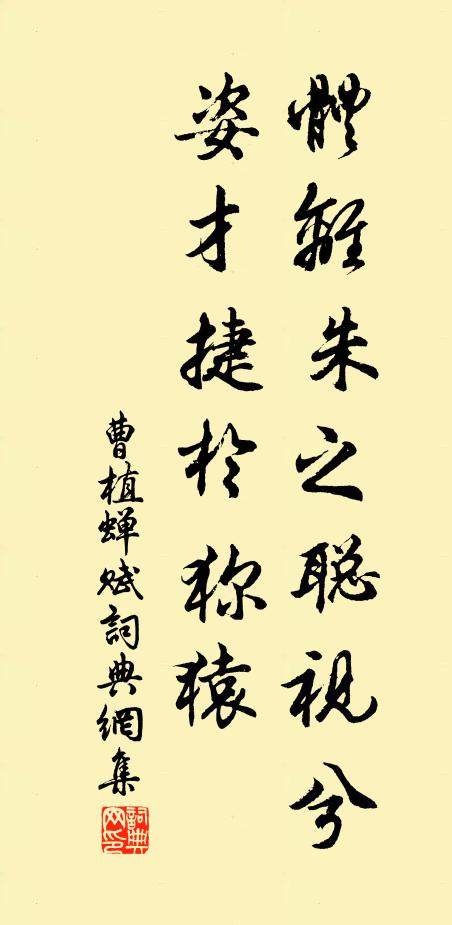 體離朱之聡視兮
姿才捷於狝猿
曹植蟬赋詞典網集
詞典網印